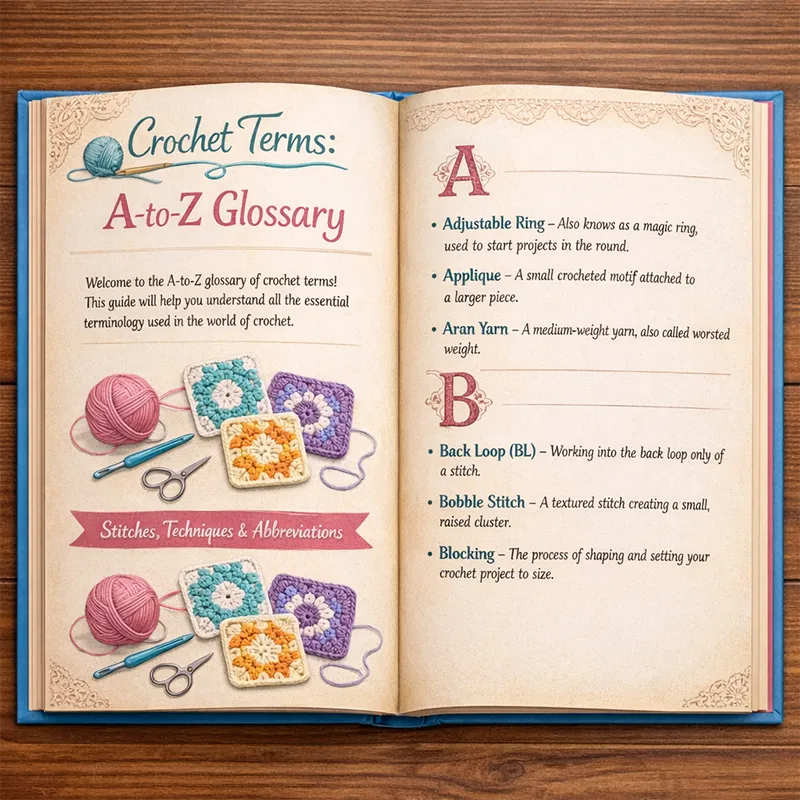 Crochet Terms:
A-to-Z Glossary
Welcome to the A-to-Z glossary of crochet terms!
This guide will help you understand all the essential
terminology used in the world of crochet.
Stitches, Techniques & Abbreviations
A
• Adjustable Ring – Also knows as a magic ring,
used to start projects in the round.
• Applique – A small crocheted motif attached to
a larger piece.
• Aran Yarn – A medium-weight yarn, also called worsted
weight.
B
• Back Loop (BL) – Working into the back loop only of
a stitch.
• Bobble Stitch – A textured stitch creating a small,
raised cluster.
• Blocking – The process of shaping and setting your
crochet project to size.